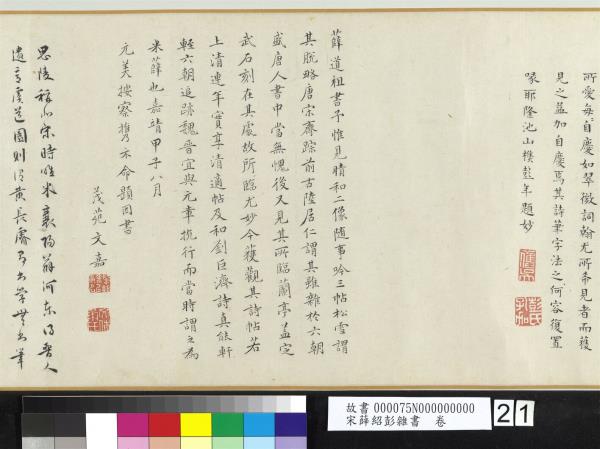 所愛每自慶如翠微詞翰尤所希見者而獲
見之益加自慶焉其詩筆字法之何容復置
喙耶隆池山樵彭年題妙
薛道祖書予惟見晴和二像隨事吟三帖松雪謂
其脫略唐宋齋蹤前古陸居仁謂其雖雜於六朝
盛唐人書中當無愧後又見其所臨蘭亭蓋定
武石刻在其處故所臨尤妙今獲觀其詩帖若
上清連年實享清適帖及和劉巨濟詩真能軒
輊六朝追跡魏晉宜與元章抗行而當時謂之為
米薛也嘉靖甲子八月
元美按察攜示命題因書
茂苑文嘉
思陵稱北宋時唯米襄陽薛河東得晉人
遺意虞道園則謂黃長睿
故書 000075N000000000
宋薛紹彭雜書 卷
21